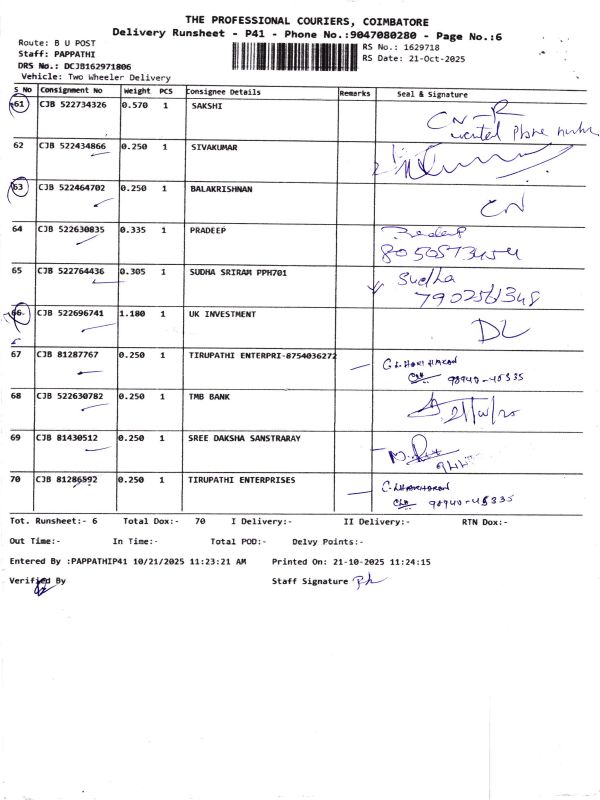 THE PROFESSIONAL COURIERS, COIMBATORE
Delivery Runsheet - P41 - Phone No.:9047080280 - Page No.:6
Route: B U POST
RS No.: 1629718
Staff: PAPPATHI
RS Date: 21-Oct-2025
DRS No.: DCJB162971806
Vehicle: Two Wheeler Delivery
S No Consignment No Weight PCS Consignee Details Remarks Seal & Signature
61 CJB 522734326 0.570 1 SAKSHI CN-R
wanted Phone number
62 CJB 522434866 0.250 1 SIVAKUMAR
63 CJB 522464702 0.250 1 BALAKRISHNAN CN
64 CJB 522630835 0.335 1 PRADEEP Pradeep
65 CJB 522764436 0.305 1 SUDHA SRIRAM PPH701 Sudha
7902561348
66 CJB 522696741 1.180 1 UK INVESTMENT DL
67 CJB 81287767 0.250 1 TIRUPATHI ENTERPRI-8754036272
98940-45335
68 CJB 522630782 0.250 1 TMB BANK
69 CJB 81430512 0.250 1 SREE DAKSHA SANSTRARAY
70 CJB 81286592 0.250 1 TIRUPATHI ENTERPRISES
98940-45335
Tot. Runsheet:- 6 Total Dox:- 70 I Delivery:- II Delivery:- RTN Dox:-
Out Time:- In Time:- Total POD:- Delvy Points:-
Entered By :PAPPATHIP41 10/21/2025 11:23:21 AM Printed On: 21-10-2025 11:24:15
Verified By Staff Signature